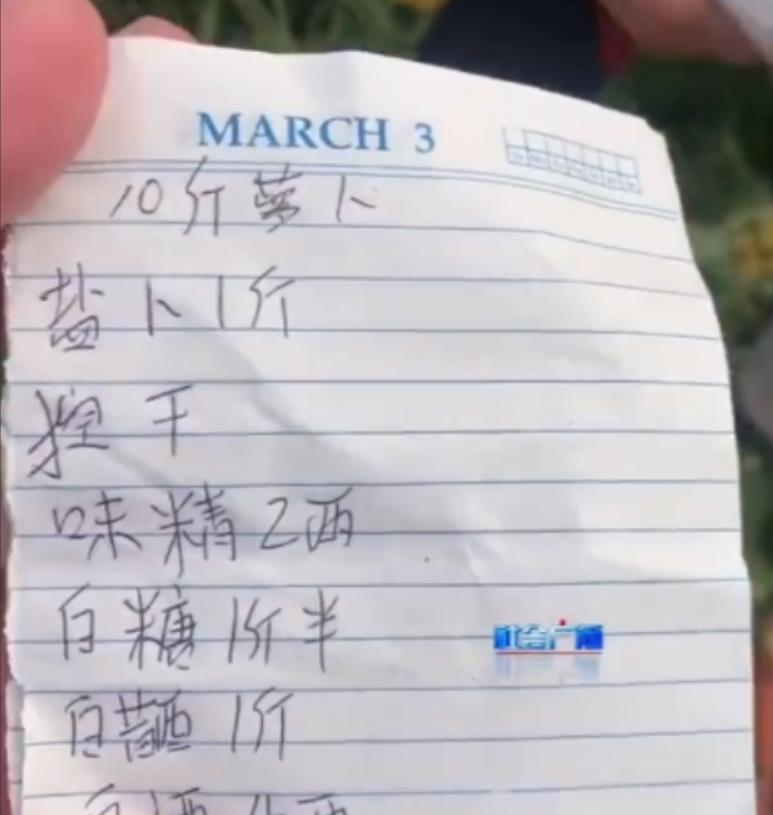 MARCH 3
10斤萝卜
盐卜1斤
控干
味精2两
白糖1斤半
社会广角
白醋1斤